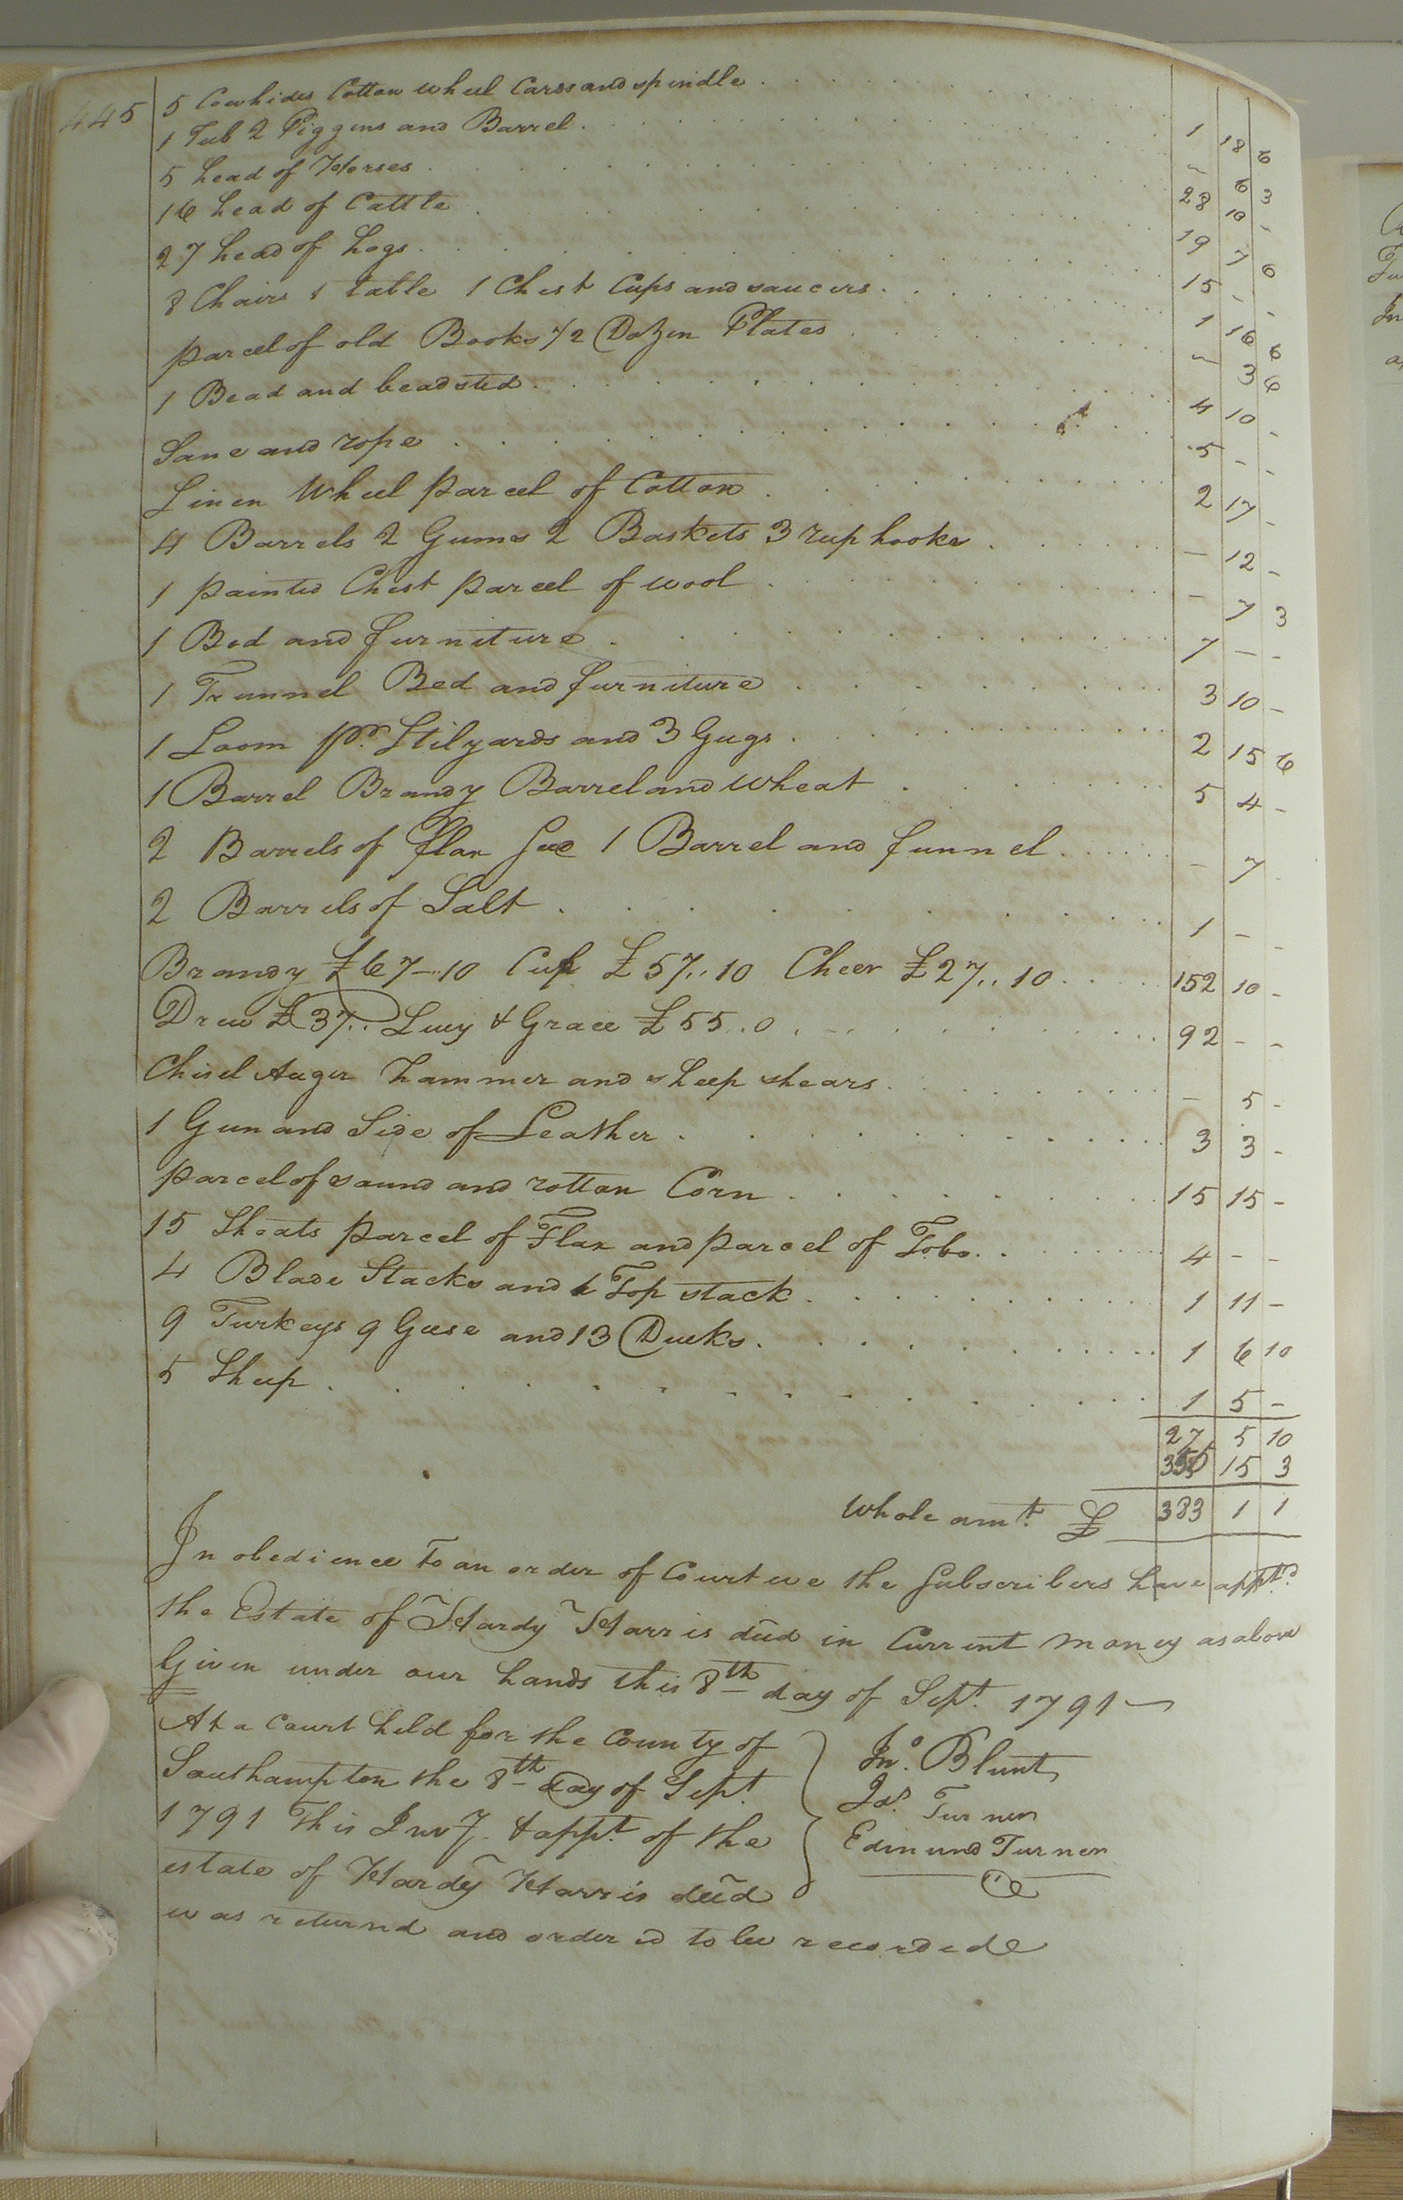 445
5 Cowhides Cotton wheel Cards and spindle 1 18 6
1 Tub 2 Piggins and Barrel ~ 6 3
5 head of Horses 28 10 -
16 head of Cattle 19 7 6
27 head of hogs 15 - -
8 Chairs 1 table 1 Chest Cups and saucers 1 16 6
parcel of old Books 1/2 Dozen Plates ~ 3 6
1 Bead and beadsted 4 10 -
Sane and rope 5 - -
Linen Wheel parcel of Cotton 2 17 -
4 Barrels 2 Gums 2 Baskets 3 reep hooks - 12 -
1 painted Chest parcel of wool - 7 3
1 Bed and furniture 7 - -
1 Trunnel Bed and furniture 3 10 -
1 Loom pr. Stilyards and 3 Gugs 2 15 6
1 Barrel Brandy Barrel and Wheat 5 4 -
2 Barrels of flax See 1 Barrel and funnel - 7
2 Barrels of Salt 1 - -
Brandy £67-10 Cup £57..10 Cheer £27..10 152 10 -
Drew £37.. Lucy & Grace £55..0 92 - -
Chisel Auger hammer and sheep shears - 5 -
1 Gun and Side of Leather 3 3 -
parcel of sound and rotton Corn 15 15 -
15 Shoats parcel of Flax and parcel of Tobo. 4 - -
4 Blade Stacks and Top stack 1 11 -
9 Turkeys 9 Geese and 13 Ducks 1 6 10
5 Sheep 1 5 -
27 5 10
355 15 3
Whole amt. £ 383 1 1
In obedience to an order of Court we the Subscribers have apptd.
the Estate of Hardy Harris decd in Current money as above
Given under our hands this 8th day of Sept. 1791
At a Court held for the County of
Southampton the 8th day of Sept.
1791 This Invy. & appt. of the
estate of Hardy Harris decd
was returnd and orderd to be recorded
Jno. Blunt
Jos. Turner
Edmund Turner